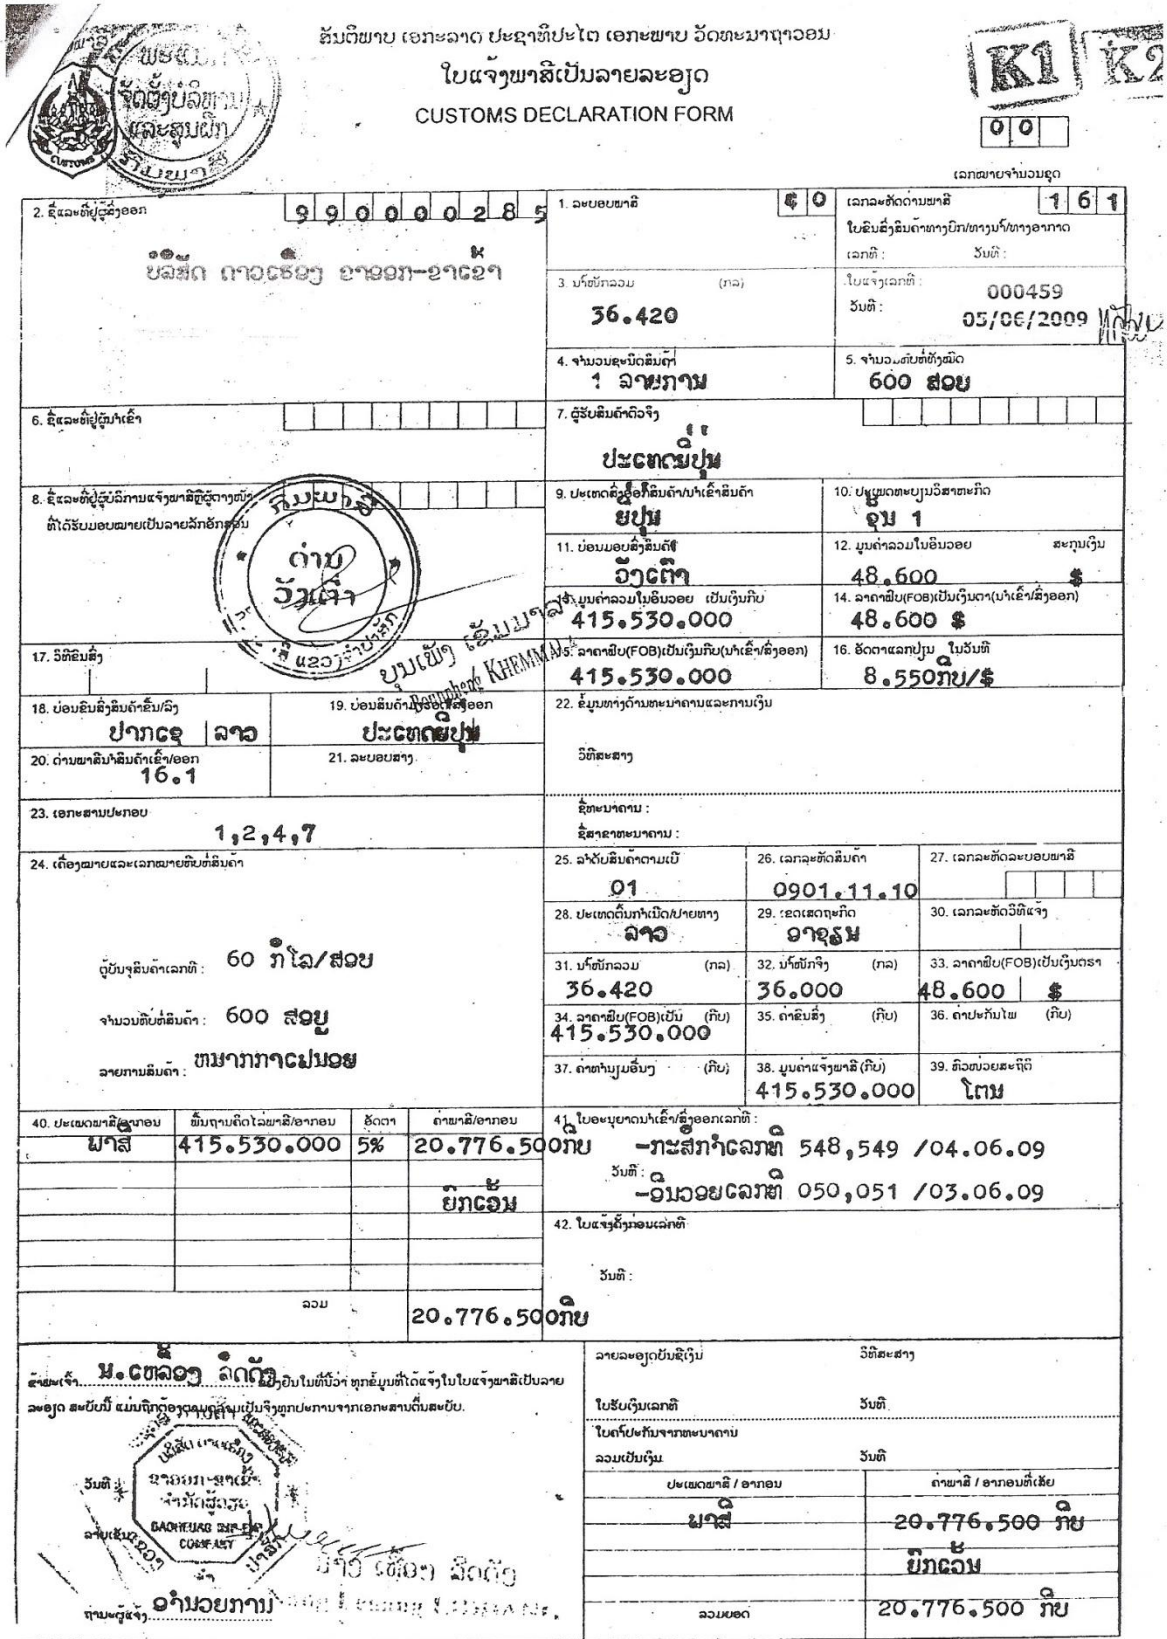 ສັນຕິພາບ ເອກະລາດ ປະຊາທິປະໄຕ ເອກະພາບ ວັດທະນາຖາວອນ
ໃບແຈ້ງພາສີເປັນລາຍລະອຽດ
CUSTOMS DECLARATION FORM
K1 K2
0 0
ຈັດຕັ້ງບໍລິຫານ
ແລະສູນຝຶກ
ກົມພາສີ
CUSTOMS
ເລກໝາຍຈຳນວນຊຸດ
2. ຊື່ແລະທີ່ຢູ່ຜູ້ສົ່ງອອກ 9 9 0 0 0 0 0 2 8 5
ບໍລິສັດ ດາວເຮືອງ ຂາອອກ-ຂາເຂົ້າ
1. ລະບອບພາສີ
ເລກລະຫັດດ່ານພາສີ 1 6 1
ໃບຂົນສົ່ງສິນຄ້າທາງບົກ/ທາງນ້ຳ/ທາງອາກາດ
ເລກທີ : ວັນທີ :
3. ນ້ຳໜັກລວມ (ກລ)
36.420
ໃບແຈ້ງເລກທີ : 000459
ວັນທີ : 05/06/2009
4. ຈຳນວນຊະນິດສິນຄ້າ
1 ລາຍການ
5. ຈຳນວນຫີບຫໍ່ທັງໝົດ
600 ສອບ
6. ຊື່ແລະທີ່ຢູ່ຜູ້ນຳເຂົ້າ
7. ຜູ້ຮັບສິນຄ້າຕົວຈິງ
ປະເທດຍີ່ປຸ່ນ
8. ຊື່ແລະທີ່ຢູ່ຜູ້ບໍລິການແຈ້ງພາສີຫຼືຜູ້ຕາງໜ້າ
ທີ່ໄດ້ຮັບມອບໝາຍເປັນລາຍລັກອັກສອນ
ກົມພາສີ
ດ່ານ
ວັງເຕົ່າ
ແຂວງຈຳປາສັກ
9. ປະເທດສົ່ງອອກສິນຄ້າ/ນຳເຂົ້າສິນຄ້າ
ຍີປຸ່ນ
10. ປະເພດທະບຽນວິສາຫະກິດ
ຂຸ້ນ 1
11. ບ່ອນມອບສົ່ງສິນຄ້າ
ວັງເຕົ່າ
12. ມູນຄ່າລວມໃນອິນວອຍ ສະກຸນເງິນ
48.600 $
13. ມູນຄ່າລວມໃນອິນວອຍ ເປັນເງິນກີບ
415.530.000
14. ລາຄາຟີບ(FOB)ເປັນເງິນຕາ(ນຳເຂົ້າ/ສົ່ງອອກ)
48.600 $
ບຸນເພັງ ເຂັມມາລາ
KHEMMALA
15. ລາຄາຟີບ(FOB)ເປັນເງິນກີບ(ນຳເຂົ້າ/ສົ່ງອອກ)
415.530.000
16. ອັດຕາແລກປ່ຽນ ໃນວັນທີ
8.550ກີບ/$
17. ວິທີຂົນສົ່ງ
18. ບ່ອນຂົນສົ່ງສິນຄ້າຂຶ້ນ/ລົງ
ປາກເຊ ລາວ
19. ບ່ອນສິນຄ້າມາຮອດ/ສົ່ງອອກ
ປະເທດຍີປຸ່ນ
20. ດ່ານພາສີນຳສິນຄ້າເຂົ້າ/ອອກ
16.1
21. ລະບອບສາງ
22. ຂໍ້ມູນທາງດ້ານທະນາຄານແລະການເງິນ
ວິທີສະສາງ
ຊື່ທະນາຄານ :
ຊື່ສາຂາທະນາຄານ :
23. ເອກະສານປະກອບ
1,2,4,7
24. ເຄື່ອງໝາຍແລະເລກໝາຍຫີບຫໍ່ສິນຄ້າ
ຕູ້ບັນຈຸສິນຄ້າເລກທີ : 60 ກິໂລ/ສອບ
ຈຳນວນຫີບຫໍ່ສິນຄ້າ : 600 ສອບ
ລາຍການສິນຄ້າ : ຫມາກກາເຟນອຍ
25. ລຳດັບສິນຄ້າຕາມເບີ
01
26. ເລກລະຫັດສິນຄ້າ
0901.11.10
27. ເລກລະຫັດລະບອບພາສີ
28. ປະເທດຕົ້ນກຳເນີດ/ປາຍທາງ
ລາວ
29. ເຂດເສດຖະກິດ
ອາຊຽນ
30. ເລກລະຫັດວິທີແຈ້ງ
31. ນ້ຳໜັກລວມ (ກລ)
36.420
32. ນ້ຳໜັກຈິງ (ກລ)
36.000
33. ລາຄາຟີບ(FOB)ເປັນເງິນຕຣາ
48.600 $
34. ລາຄາຟີບ(FOB)ເປັນ (ກີບ)
415.530.000
35. ຄ່າຂົນສົ່ງ (ກີບ)
36. ຄ່າປະກັນໄພ (ກີບ)
37. ຄ່າທຳນຽມອື່ນໆ (ກີບ)
38. ມູນຄ່າແຈ້ງພາສີ (ກີບ)
415.530.000
39. ຫົວໜ່ວຍສະຖິຕິ
ໂຕນ
40. ປະເພດພາສີ/ອາກອນ ພື້ນຖານຄິດໄລ່ພາສີ/ອາກອນ ອັດຕາ ຄ່າພາສີ/ອາກອນ
ພາສີ 415.530.000 5% 20.776.500ກີບ
ຍົກເວັ້ນ
ລວມ 20.776.500ກີບ
41. ໃບອະນຸຍາດນຳເຂົ້າ/ສົ່ງອອກເລກທີ :
-ກະສິກຳເລກທີ 548,549 /04.06.09
ວັນທີ :
-ອິນວອຍເລກທີ 050,051 /03.06.09
42. ໃບແຈ້ງຄັ້ງກ່ອນເລກທີ
ວັນທີ :
ຂ້າພະເຈົ້າ ນ.ເຫລືອງ ລິດດັງ ຢັ້ງຢືນໃນທີ່ນີ້ວ່າ ທຸກຂໍ້ມູນທີ່ໄດ້ແຈ້ງໃນໃບແຈ້ງພາສີເປັນລາຍ
ລະອຽດ ສະບັບນີ້ ແມ່ນຖືກຕ້ອງຕາມຄວາມເປັນຈິງທຸກປະການຈາກເອກະສານຕົ້ນສະບັບ.
ວັນທີ
ລາຍເຊັນ
ບໍລິສັດ ດາວເຮືອງ
ຂາອອກ-ຂາເຂົ້າ
ຈຳກັດຜູ້ດຽວ
DAOHEUAG IMP-EXP
COMPANY
ນາງ ເຫຼືອງ ລິດດັງ
ຖານະຜູ້ແຈ້ງ ອຳນວຍການ
ລາຍລະອຽດບັນຊີເງິນ ວິທີສະສາງ
ໃບຮັບເງິນເລກທີ ວັນທີ
ໃບຄ້ຳປະກັນຈາກທະນາຄານ
ລວມເປັນເງິນ ວັນທີ
ປະເພດພາສີ / ອາກອນ ຄ່າພາສີ / ອາກອນທີ່ເສັຍ
ພາສີ 20.776.500 ກີບ
ຍົກເວັ້ນ
ລວມຍອດ 20.776.500 ກີບ